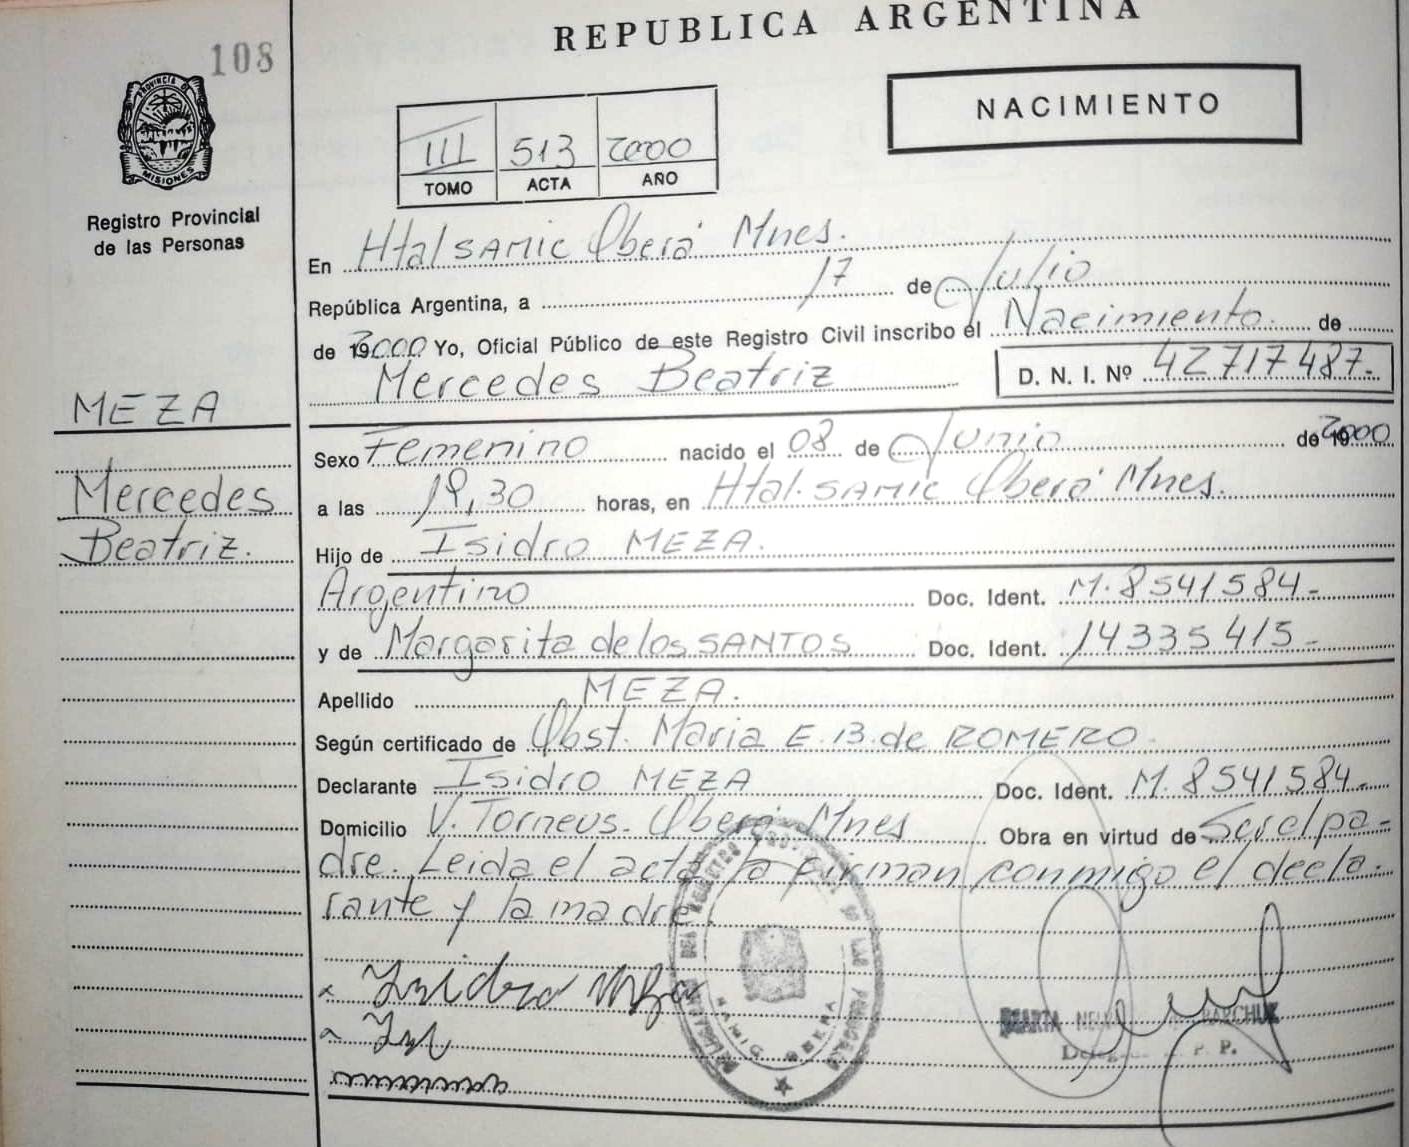 108
REPUBLICA ARGENTINA
PROVINCIA DE
MISIONES
Registro Provincial
de las Personas
NACIMIENTO
III 513 2000
TOMO ACTA AÑO
En Htal SAMIC Oberá Mnes.
República Argentina, a 17 de Julio
de 2000 Yo, Oficial Público de este Registro Civil inscribo el Nacimiento. de
Mercedes Beatriz D. N. I. Nº 42717487-
MEZA
Mercedes
Beatriz.
Sexo Femenino nacido el 08 de Junio de 2000
a las 19,30 horas, en Htal. SAMIC Oberá Mnes.
Hijo de Isidro MEZA.
Argentino Doc. Ident. M. 8541584-
y de Margarita de los SANTOS Doc. Ident. 14335415-
Apellido MEZA.
Según certificado de Obst. Maria E. B. de ROMERO-
Declarante Isidro MEZA Doc. Ident. M. 8541584-
Domicilio V. Torneus- Oberá Mnes Obra en virtud de Ser el pa-
dre. Leida el acta la firman conmigo el decla-
rante y la madre.
x Isidro Meza
REGISTRO PROVINCIAL DE LAS PERSONAS
SAMIC OBERA